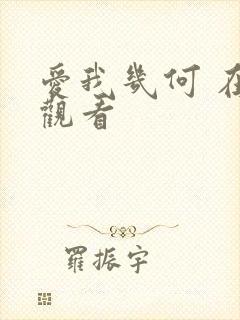 愛我幾何 在
觀看
羅振宇